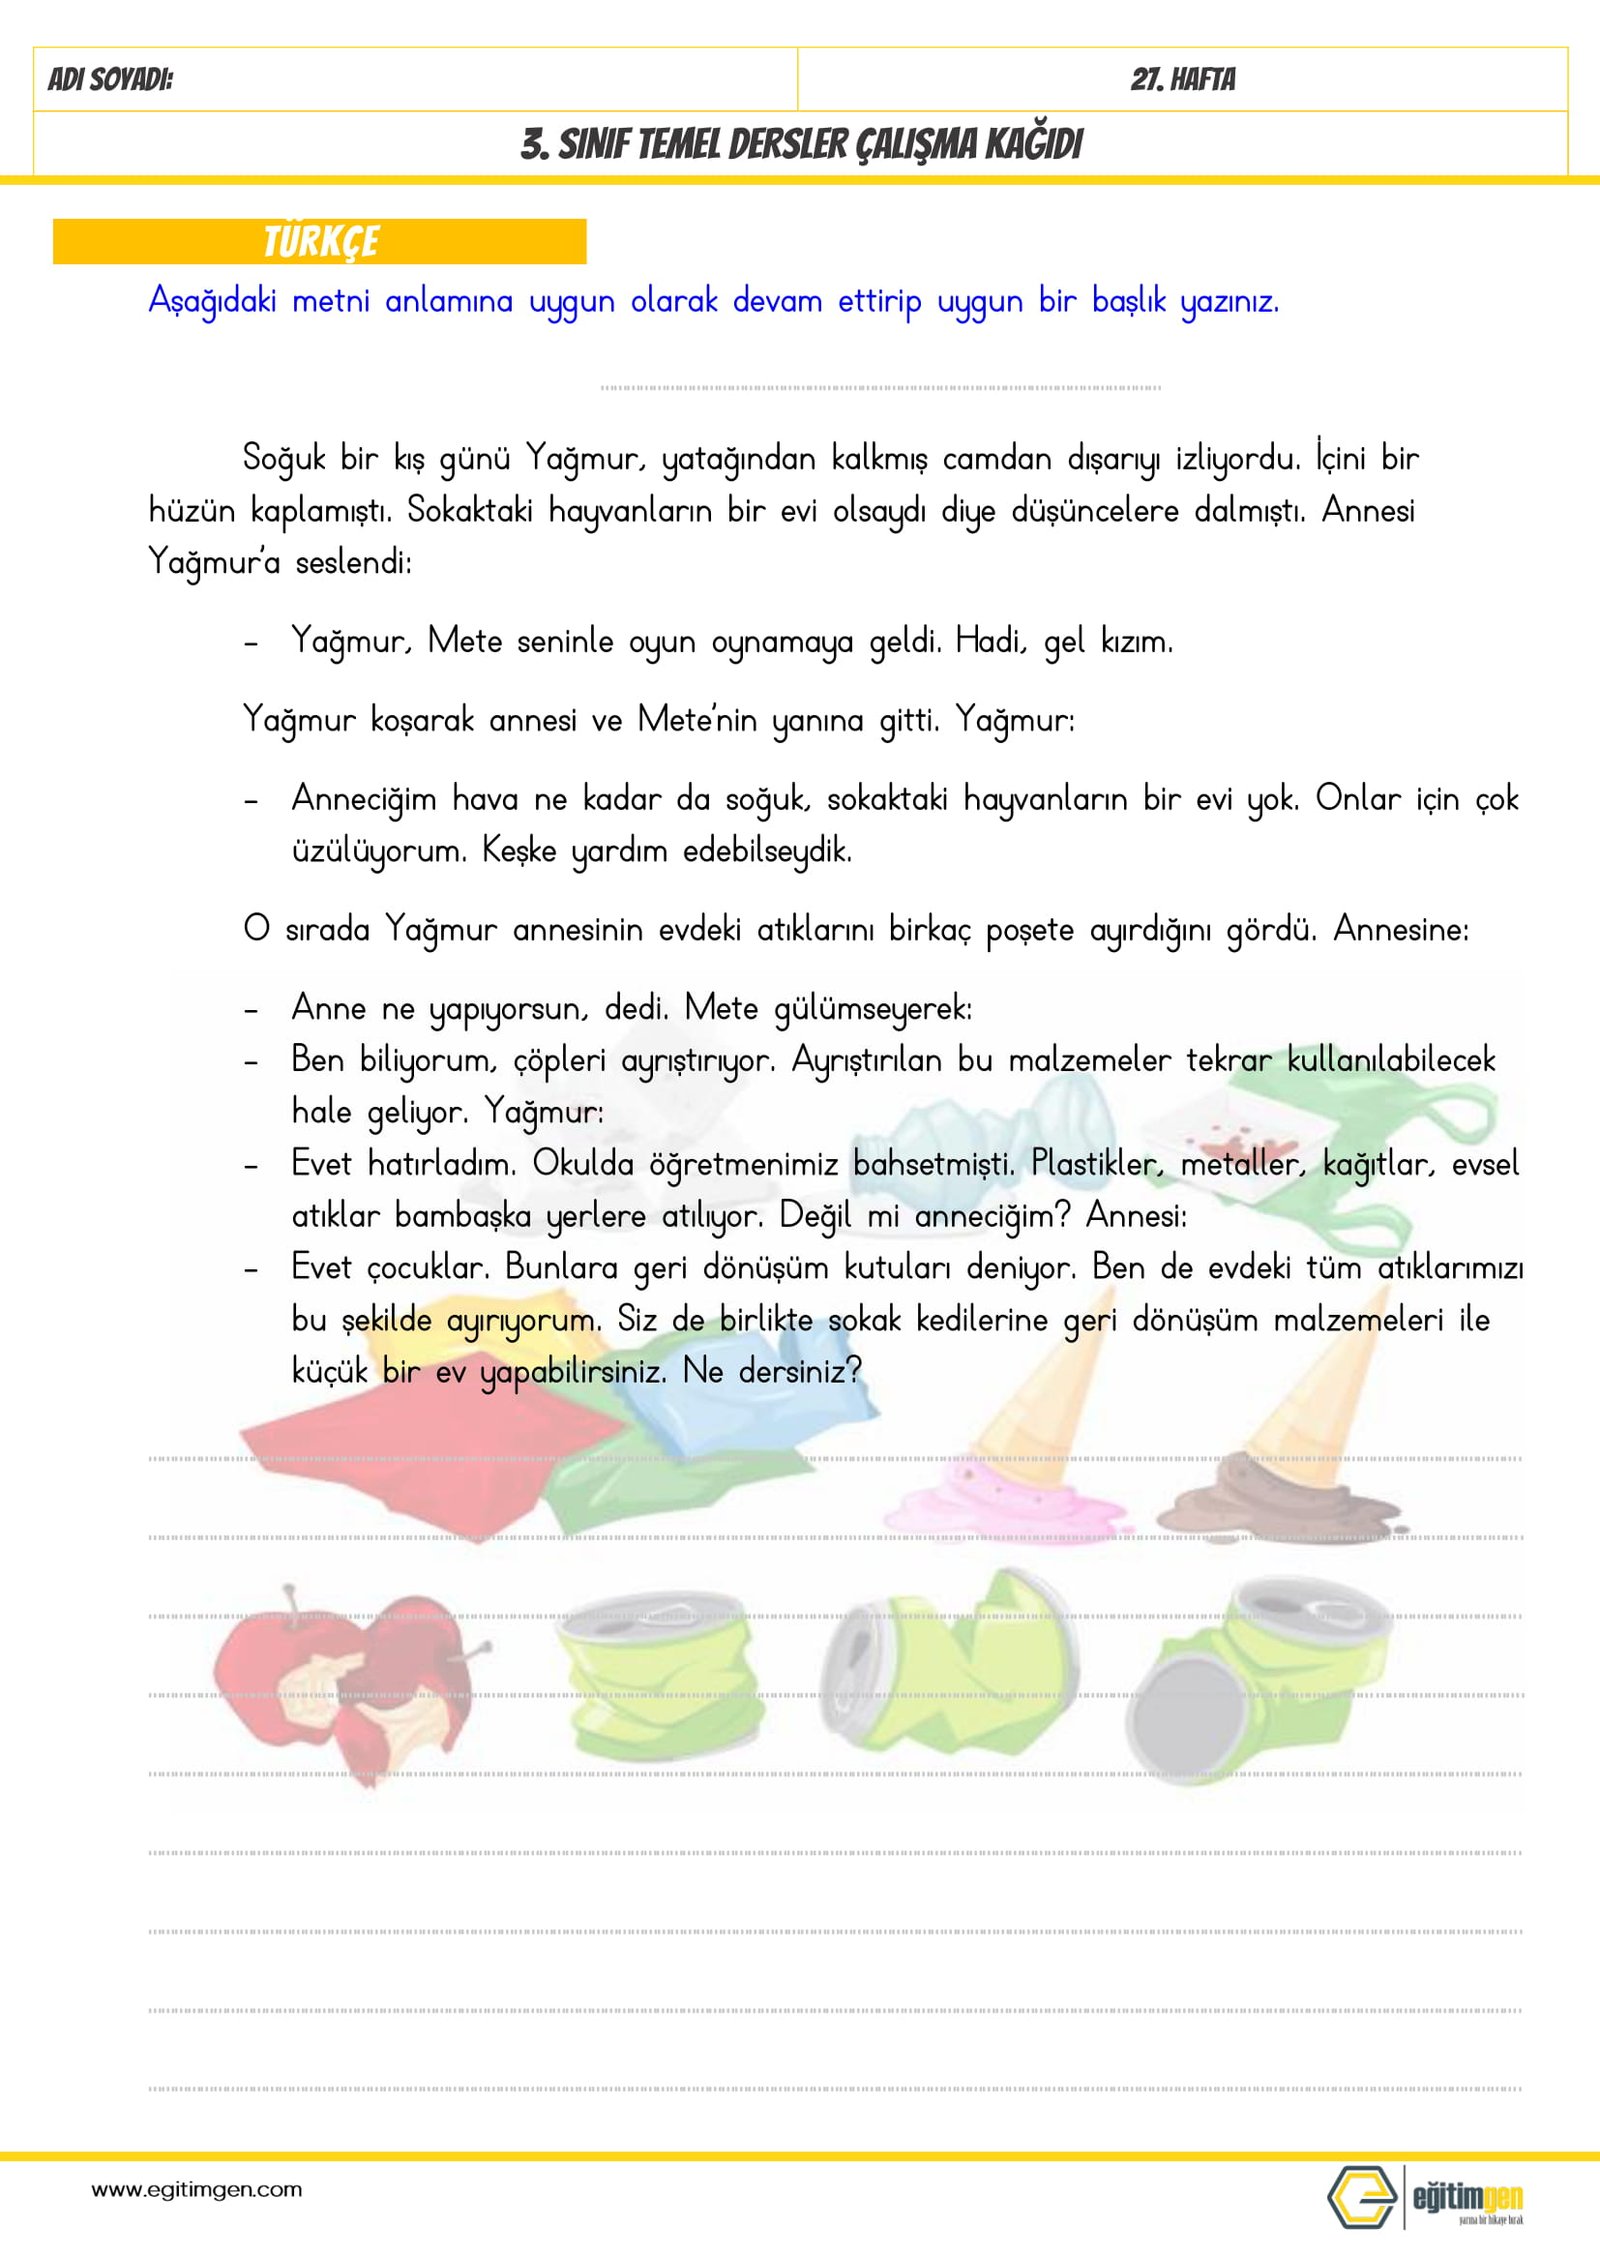 ADI SOYADI:
27. HAFTA
3. SINIF TEMEL DERSLER ÇALIŞMA KAĞIDI
TÜRKÇE
Aşağıdaki metni anlamına uygun olarak devam ettirip uygun bir başlık yazınız.
Soğuk bir kış günü Yağmur, yatağından kalkmış camdan dışarıyı izliyordu. İçini bir
hüzün kaplamıştı. Sokaktaki hayvanların bir evi olsaydı diye düşüncelere dalmıştı. Annesi
Yağmur'a seslendi:
- Yağmur, Mete seninle oyun oynamaya geldi. Hadi, gel kızım.
Yağmur koşarak annesi ve Mete'nin yanına gitti. Yağmur:
- Anneciğim hava ne kadar da soğuk, sokaktaki hayvanların bir evi yok. Onlar için çok
üzülüyorum. Keşke yardım edebilseydik.
O sırada Yağmur annesinin evdeki atıklarını birkaç poşete ayırdığını gördü. Annesine:
- Anne ne yapıyorsun, dedi. Mete gülümseyerek:
- Ben biliyorum, çöpleri ayrıştırıyor. Ayrıştırılan bu malzemeler tekrar kullanılabilecek
hale geliyor. Yağmur:
- Evet hatırladım. Okulda öğretmenimiz bahsetmişti. Plastikler, metaller, kağıtlar, evsel
atıklar bambaşka yerlere atılıyor. Değil mi anneciğim? Annesi:
- Evet çocuklar. Bunlara geri dönüşüm kutuları deniyor. Ben de evdeki tüm atıklarımızı
bu şekilde ayırıyorum. Siz de birlikte sokak kedilerine geri dönüşüm malzemeleri ile
küçük bir ev yapabilirsiniz. Ne dersiniz?
www.egitimgen.com
eğitimgen
yarına bir hikaye bırak